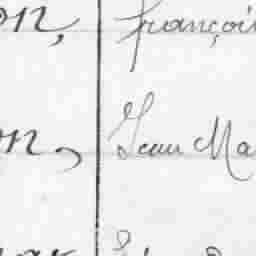 on, françoi
on, Jean Ma